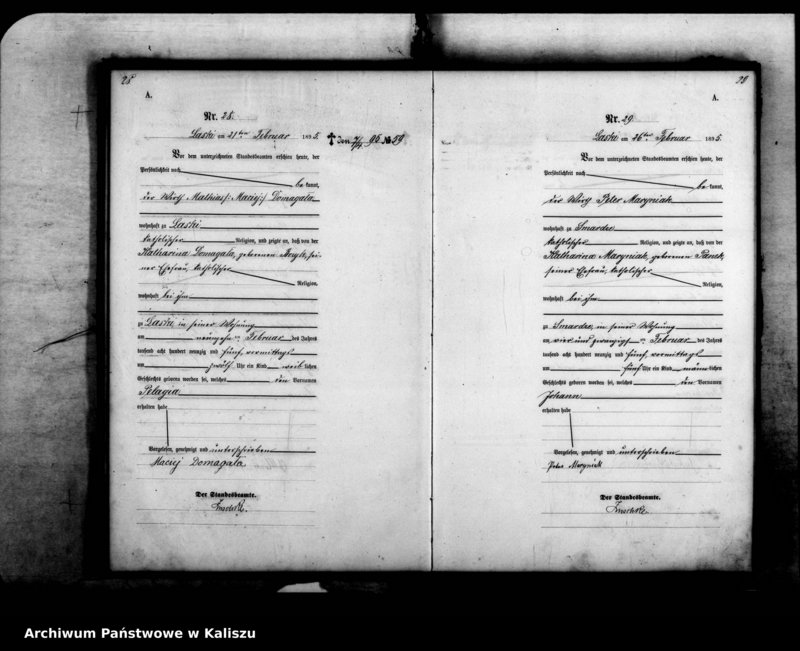 28
A.
Nr. 28.
Laski am 21ten Februar 1895.
† den 7/7 95 № 59
Vor dem unterzeichneten Standesbeamten erschien heute, der
Persönlichkeit nach
bekannt,
der Wirth Mathias /: Maciej :/ Domagała
wohnhaft zu Laski
katholischer Religion, und zeigte an, daß von der
Katharina Domagała, geborenen, sei-
ner Ehefrau, katholischer
Religion,
wohnhaft bei ihm
zu Laski, in seiner Wohnung
am neunzehnten Februar des Jahres
tausend acht hundert neunzig und fünf, vormittags
um zwölf Uhr ein Kind weiblichen
Geschlechts geboren worden sei, welches den Vornamen
Pelagia
erhalten habe
Vorgelesen, genehmigt und unterschrieben
Maciej Domagała
Der Standesbeamte.
29
A.
Nr. 29.
Laski am 26ten Februar 1895.
Vor dem unterzeichneten Standesbeamten erschien heute, der
Persönlichkeit nach
bekannt,
der Wirth Peter Maryniak
wohnhaft zu Smardze
katholischer Religion, und zeigte an, daß von der
Katharina Maryniak, geborenen
seiner Ehefrau, katholischer
Religion,
wohnhaft bei ihm
zu Smardze, in seiner Wohnung
am vier und zwanzigsten Februar des Jahres
tausend acht hundert neunzig und fünf, vormittags
um fünf Uhr ein Kind männlichen
Geschlechts geboren worden sei, welches den Vornamen
Johann
erhalten habe
Vorgelesen, genehmigt und unterschrieben
Peter Maryniak
Der Standesbeamte.
Archiwum Państwowe w Kaliszu